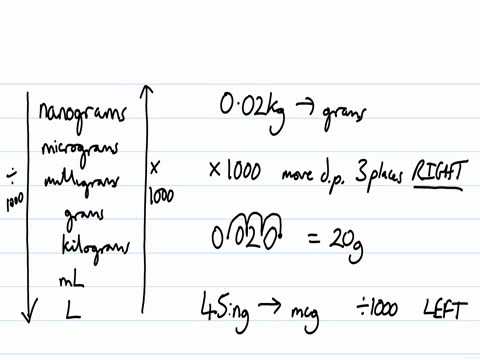 nanograms
micrograms
milligrams
grams
kilograms
mL
L
÷
1000
×
1000
0·02kg → grams
×1000 move d.p. 3 places RIGHT
0 020 = 20g
45ng → mcg ÷1000 LEFT